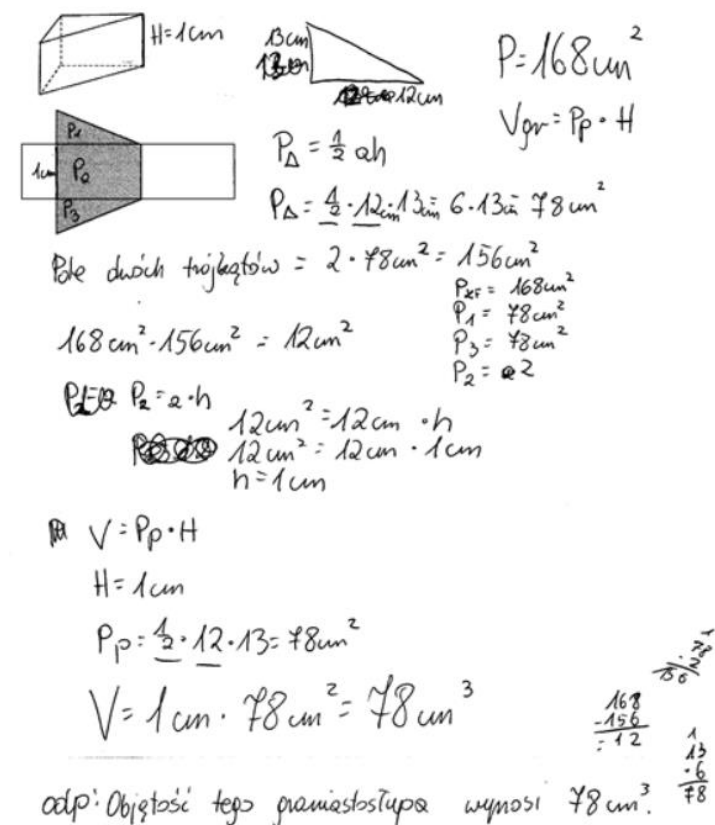 H=1cm
13cm
12cm
P=168cm²
Vgr=Pp·H
P₁
1cm P₂
P₃
P△ = ½ ah
P△ = ½ · 12cm · 13cm = 6·13cm = 78cm²
Pole dwóch trójkątów = 2 · 78cm² = 156cm²
168cm² - 156cm² = 12cm²
= 168cm²
P₁ = 78cm²
P₃ = 78cm²
P₂ = 2
P₂ = a·h
12cm² = 12cm · h
12cm² = 12cm · 1cm
h = 1cm
V = Pp·H
H = 1cm
Pp = ½ · 12 · 13 = 78cm²
V = 1cm · 78cm² = 78cm³
1
78
·2
156
168
-156
=12
1
13
·6
78
odp: Objętość tego graniastosłupa wynosi 78cm³.